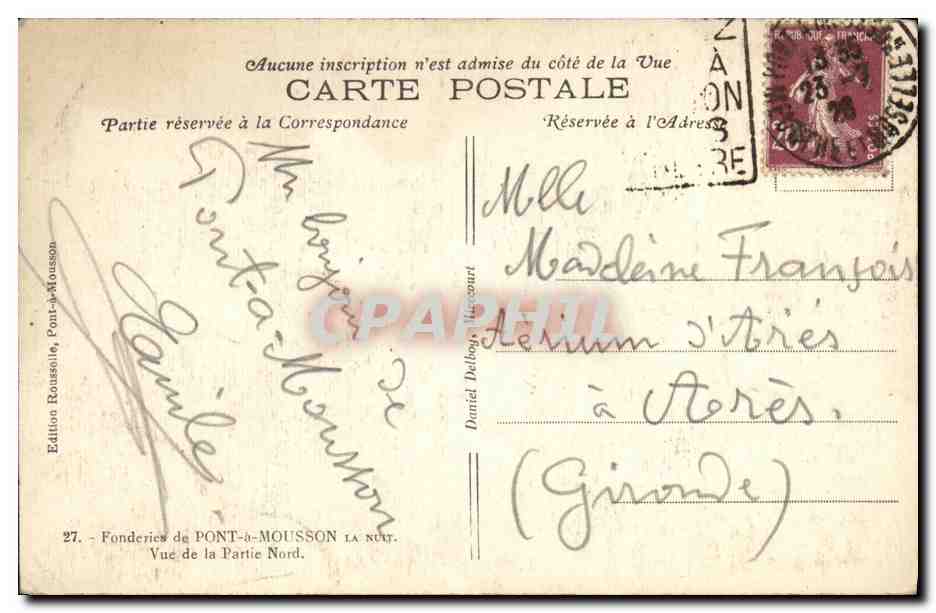 Aucune inscription n'est admise du côté de la Vue
CARTE POSTALE
Partie réservée à la Correspondance
Réservée à l'Adresse
Z
À
ON
S
RE
REPUBLIQUE FRANÇAISE
POSTES
Un bonjour de
Pont-à-Mousson
Mlle
Madeleine François
Aérium d'Arès
à Arès.
(Gironde)
Edition Roussolle, Pont-à-Mousson
Daniel Delboy, Mirecourt
CPAPHIL
27. - Fonderies de PONT-à-MOUSSON LA NUIT.
Vue de la Partie Nord.